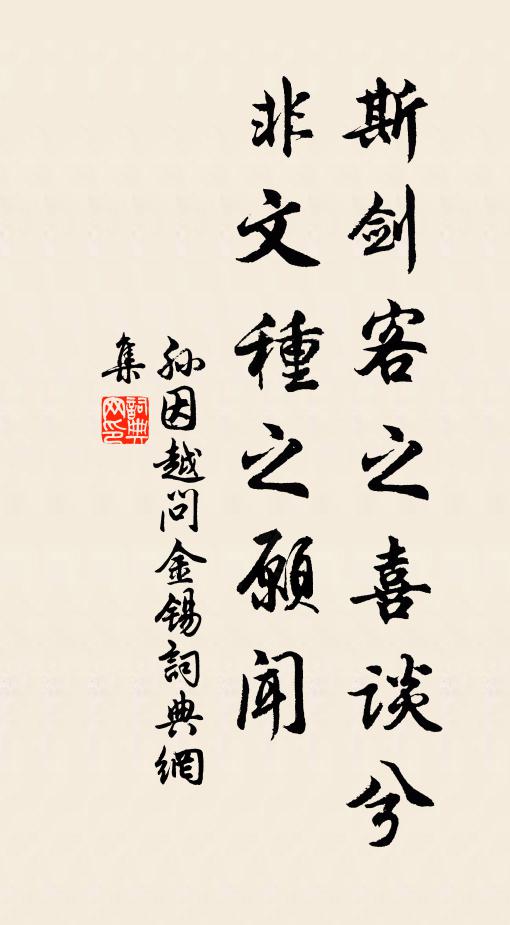 斯剑客之喜谈兮
非文種之願闻
孙因越问金锡詞典網
集
詞典网印